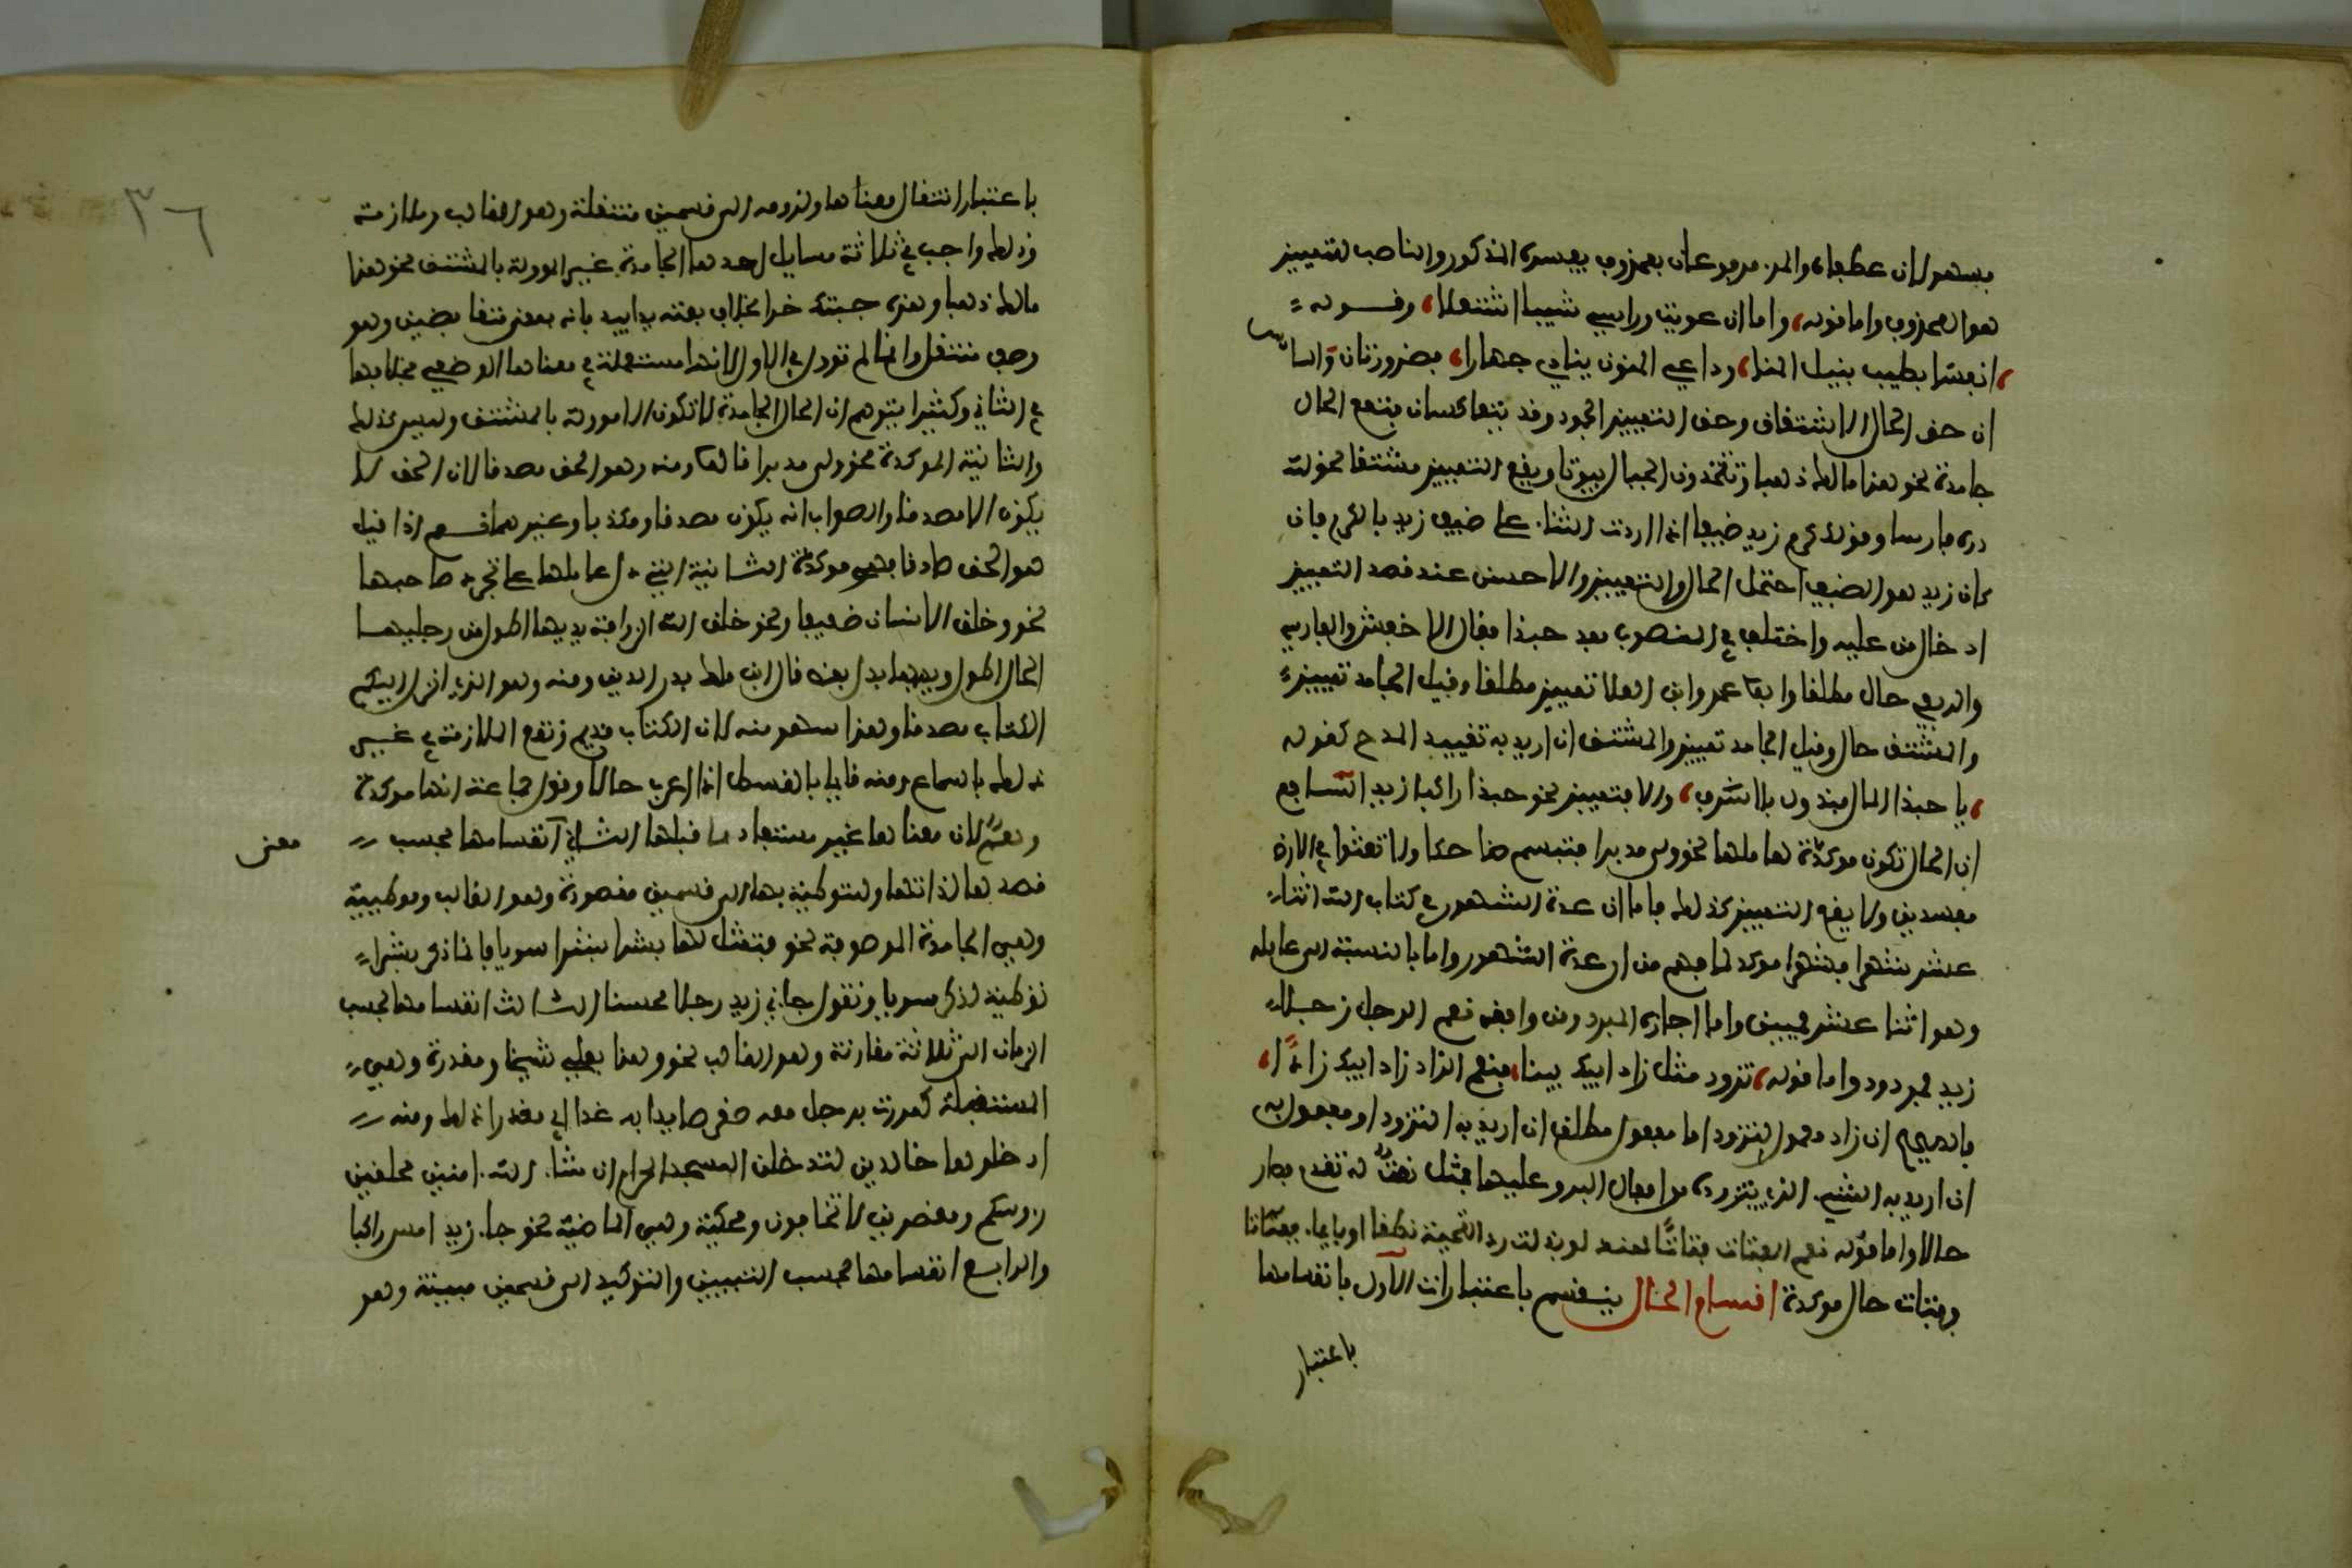 فسهو لان عطفاه والمرء مرفوعان بمحذوف يفسره المذكور والناصب للتمييز
هو المحذوف واما قوله، وما ارعويت ورأسي شيبا اشتعلا، وقوله
، انفسا بطيب بنيل المنا، وداعي المنون ينادي جهارا، فضرورتان والسادس
ان حق الحال الاشتقاق وحق التمييز الجمود وقد يتعاكسان فتقع الحال
جامدة نحو هذا مالك ذهبا وتنحتون الجبال بيوتا ويقع التمييز مشتقا نحو لله
دره فارسا وقولك كرم زيد ضيفا اذا اردت الثناء على ضيف زيد بالكرم فان
كان زيد هو الضيف احتمل الحال والتمييز والاحسن عند قصد التمييز
ادخال من عليه واختلف في المنصوب بعد حبذا فقال الاخفش والفارسي
والربعي حال مطلقا وابو عمرو ابن العلا تمييز مطلقا وقيل الجامد تمييز
والمشتق حال وقيل الجامد تمييز والمشتق ان اريد به تقييد المدح كقوله
، يا حبذا المال مبذول بلا سرف، والا فتمييز نحو حبذا راكبا زيد السابع
ان الحال تكون موكدة لعاملها نحو ولى مدبرا فتبسم ضاحكا ولا تعثوا في الارض
مفسدين ولا يقع التمييز كذلك فاما ان عدة الشهور في كتاب الله اثنا
عشر شهرا فشهرا موكد لما فهم من ان عدة الشهور واما بالنسبة الى عامله
وهو اثنا عشر فمبين واما اجازة المبرد ومن وافقه نعم الرجل رجلا
زيد فمردود واما قوله، تزود مثل زاد ابيك فينا، فنعم الزاد زاد ابيك زادا،
فالصحيح ان زادا معمول لتزود اما مفعول مطلق ان اريد به التزود او مفعول به
ان اريد به الشيء الذي يتزوده من افعال البر وعليهما فمثل نعت له تقدم فصار
حالا واما قوله نعم الفتاة فتاة هند لو بذلت رد التحية نطقا او بايماء ففتاة
حال موكدة اقسام الحال ينقسم باعتبارات الاول بانقسامها
باعتبار
باعتبار انتقال معناها ولزومه الى قسمين منتقلة وهو الغالب وملازمة
وذلك واجب في ثلاثة مسايل احدها الجامدة غير المولة بالمشتق نحو هذا
مالك ذهبا وهذه جبتك خزا بخلاف بعته يدا بيد فانه بمعنى متقابضين وهو
وصف منتقل وانما لم تؤول في الاول لانها مستعملة في معناها الوضعي بخلافها
في الثاني وكثيرا يتوهم ان الحال الجامدة لا تكون الا مولة بالمشتق وليس كذلك
والثانية الموكدة نحو ولى مدبرا قالوا ومنه وهو الحق مصدقا لان الحق لا
يكون الا مصدقا والصواب انه يكون مصدقا ومكذبا وغيرهما نعم اذا قيل
هو الحق صادقا فهي موكدة الثانية التي دل عاملها على تجدد صاحبها
نحو وخلق الانسان ضعيفا ونحو خلق الله الزرافة يديها اطول من رجليها
الحال اطول ويديها بدل بعض قال ابن مالك بدر الدين ومنه وهو الذي انزل اليكم
الكتاب مصدقا وهذا سهو منه لان الكتاب قديم وتقع الملازمة في غير
ذلك بالسماع ومنه قايما بالقسط اذا اعرب حالا وقول جماعة انها موكدة
وهم لان معناها غير مستفاد مما قبلها الثاني انقسامها بحسب
معنى
قصدها لذاتها وللتوطية بها الى قسمين مقصودة وهو الغالب وموطية
وهي الجامدة الموصوفة نحو فتمثل لها بشرا سويا فانما ذكر بشرا
توطية لذكر سويا وتقول جاني زيد رجلا محسنا الثالث انقسامها بحسب
الزمان الى ثلاثة مقارنة وهو الغالب نحو وهذا بعلي شيخا ومقدرة وهي
المستقبلة كمررت برجل معه صقر صايدا به غدا اي مقدرا ذلك ومنه
ادخلوها خالدين لتدخلن المسجد الحرام ان شاء الله امنين محلقين
روسكم ومقصرين لا تخافون ومحكية وهي الماضية نحو جاء زيد امس راكبا
والرابع انقسامها بحسب التبيين والتوكيد الى قسمين مبينة وهو
٣٦